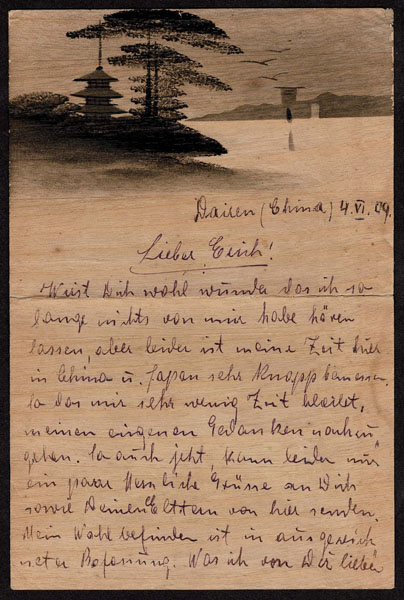 Dairen (China) 4.VI.09.
Lieber Erich!
Wirst Dich wohl wundern das ich so
lange nichts von mir habe hören
lassen, aber leider ist meine Zeit hier
in China u. Japan sehr knapp bemessen
so das mir sehr wenig Zeit bleibt,
meinen eigenen Gedanken nachzu„
gehen. So auch jetzt, kann leider nur
ein paar Herzliche Grüsse an Dich
sowie Deinen Eltern von hier senden.
Mein Wohl befinden ist in ausgezeich
neter Verfassung. Was ich von Dir lieber